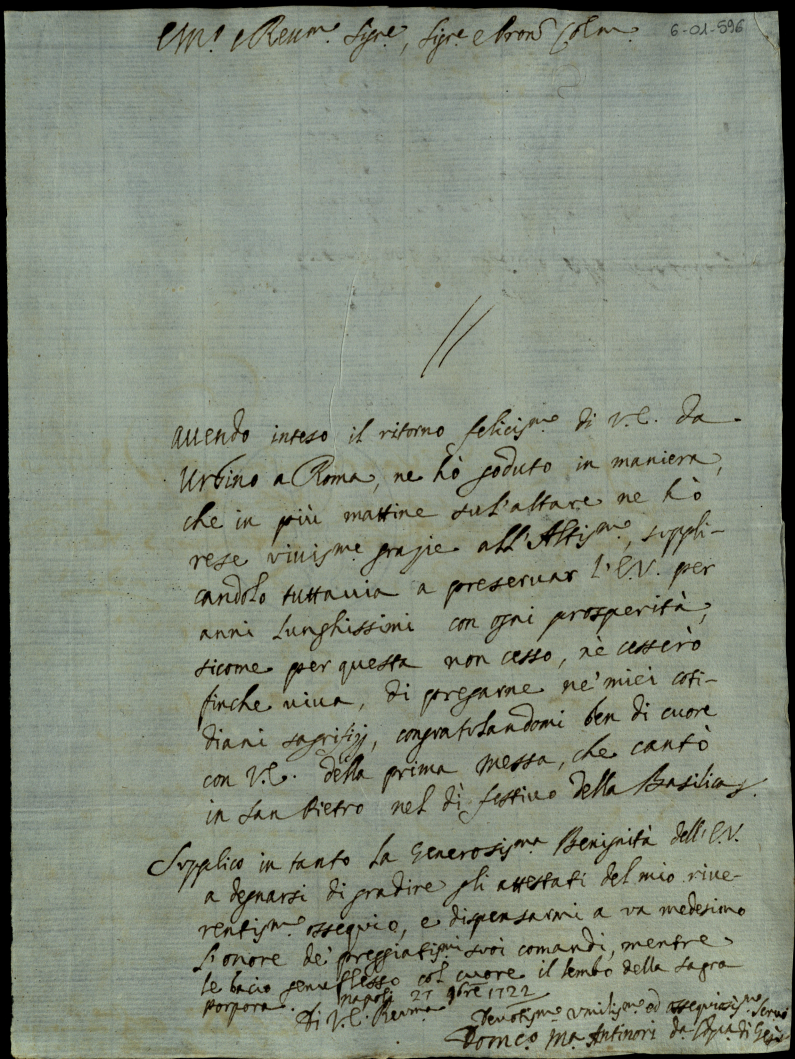 Em.º e Reu.mo Sig.re, Sig.re e Pron Col.mo
6-01-596
//
Auendo inteso il ritorno felicis.mo di V.E. da
Urbino a Roma, ne hò goduto in maniera,
che in più mattine sul'altare ne hò
rese viuis.me grazie all'Altis.mo, suppli-
candolo tuttauia a preseruar l'E.V. per
anni Lunghissimi con ogni prosperità,
sicome per questa non cesso, nè cesserò
finche viua, di pregarne ne' miei coti-
diani sagrifizj, congratulandomi ben di cuore
con V.E. della prima Messa, che cantò
in San Pietro nel dì festiuo della Basilica.
Supplico in tanto La Generosis.ma Benignità dell'E.V.
a degnarsi di gradire gli attestati del mio riue-
rentis.mo ossequio, e dispensarmi a va medesimo
L'onore de' preggiatis.mi suoi comandi, mentre
le bacio genuflesso col cuore il lembo della sagra
Porpora. Napoli 27 9bre 1722
Di V.E. Reuma
Deuotis.mo Vmilis.mo ed ossequiosis.mo Seruo
Dom.co Ma Antinori da Comp.a di Giesù